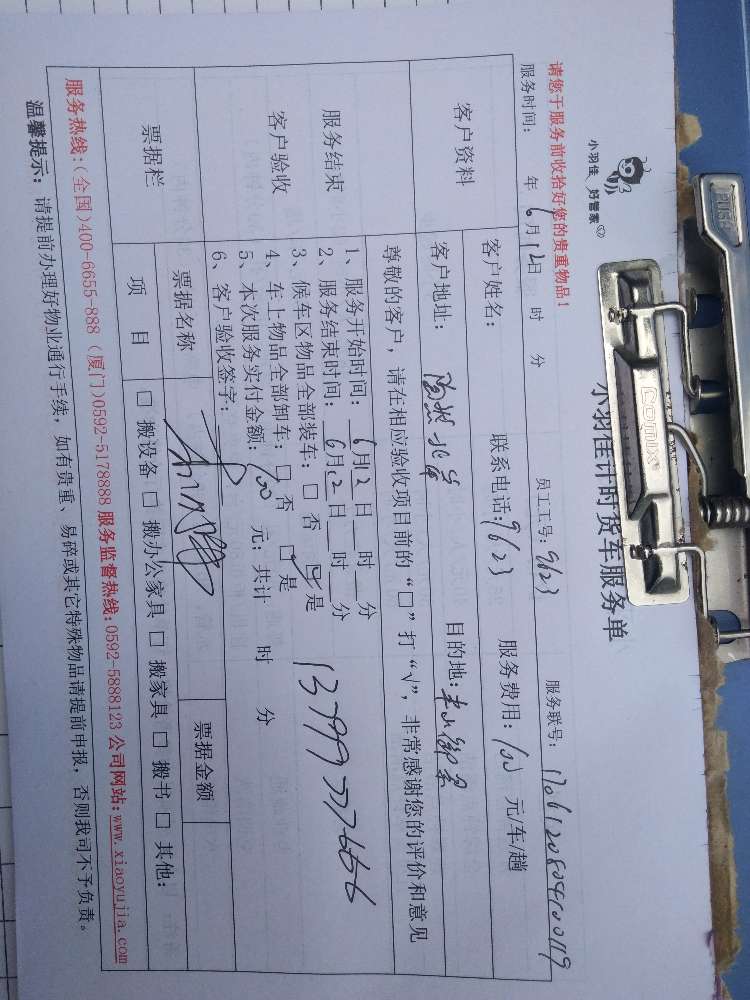 PUSH
Comix
小羽佳 好管家
小羽佳计时货车服务单
请您于服务前收拾好您的贵重物品！
服务时间： 年 6月12日 时 分 员工工号：9623 服务联号：
客户资料
客户姓名： 联系电话：9623 服务费用：100 元/车/趟
客户地址： 目的地：
尊敬的客户，请在相应验收项目前的“□”打“√”，非常感谢您的评价和意见
服务结束
客户验收
1、服务开始时间：6月12日 时 分
2、服务结束时间：6月12日 时 分
3、候车区物品全部装车：□ 否 ☑ 是
4、车上物品全部卸车：□ 否 □ 是
13799777666
5、本次服务实付金额：100 元；共计 时 分
6、客户验收签字：
票据栏
票据名称 票据金额
项 目 □ 搬设备 □ 搬办公家具 □ 搬家具 □ 搬书 □ 其他：
服务热线：(全国)400-6655-888（厦门)0592-5178888 服务监督热线：0592-5888123 公司网站：www.xiaoyujia.com
温馨提示：请提前办理好物业通行手续，如有贵重、易碎或其它特殊物品请提前申报，否则我司不予负责。